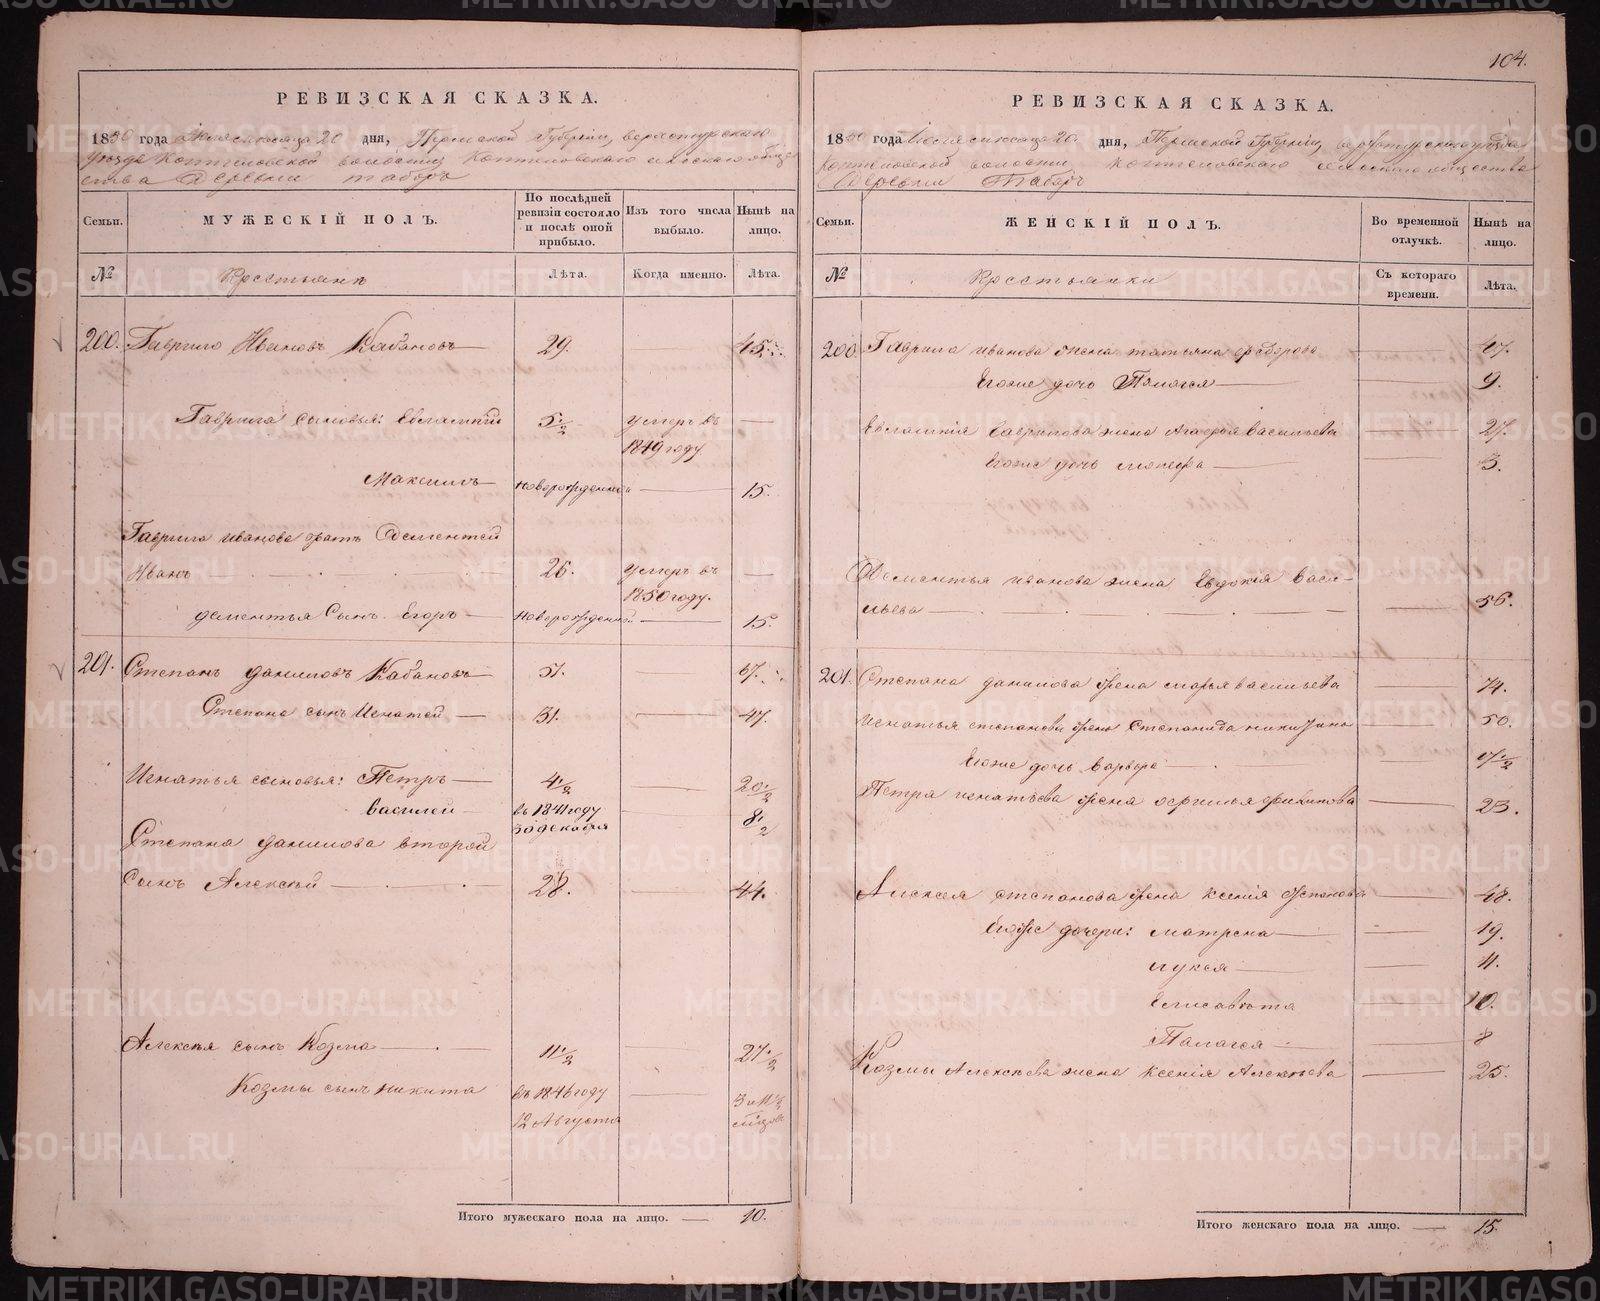 104.
РЕВИЗСКАЯ СКАЗКА.
1850 года Іюля месяца 20 дня, Пермской Губерніи, верхотурскаго
уезда Коптеловской волости Коптеловскаго сельскаго обще
ства Деревни Таборъ
Семьи.
МУЖЕСКІЙ ПОЛЪ.
По послѣдней ревизіи состояло и послѣ оной прибыло.
Изъ того числа выбыло.
Нынѣ на лицо.
№
Крестьяне
Лѣта.
Когда именно.
Лѣта.
200. Гаврило Ивановъ Кабановъ 29. 45.
Гаврила сыновья: Евлампий 5 1/2 умеръ въ
1849 году.
Максимъ новорожденной 15.
Гаврила иванова братъ Дементей
Иванъ 26. умеръ въ
1850 году.
дементья Сынъ Егоръ новорожденной 15.
201. Степанъ даниловъ Кабановъ 51. 67.
Степана сынъ Игнатей 31. 47.
Игнатья сыновья: Петръ 4 1/2 20 1/2
василей въ 1841 году 8 1/2
30 декабря
Степана данилова второй
Сынъ Алексѣй 28. 44.
Алексѣя сынъ Козма 11 1/2 27 1/2
Козмы сынъ никита въ 1846 году
12 Августа
Итого мужескаго пола на лицо. — 10.
РЕВИЗСКАЯ СКАЗКА.
1850 года Іюля месяца 20 дня, Пермской Губерніи, верхотурскаго уезда
Коптеловской волости Коптеловскаго сельскаго общества
Деревни Таборъ
Семьи.
ЖЕНСКІЙ ПОЛЪ.
Во временной отлучкѣ.
Нынѣ на лицо.
№
Крестьянки
Съ котораго времени.
Лѣта.
200. Гаврила иванова жена татьяна федорова 47.
Егоже дочь Палагея 9.
Евлампія гаврилова жена Агафья васильева 27.
Егоже дочь 3.
Дементья иванова жена Евдокія васи-
льева 56.
201. Степана данилова жена марья васильева 74.
игнатья степанова жена степанида никитина 50.
Егоже дочь варвара 1/2
Петра игнатьева жена 23.
Алексея степанова жена ксенія 48.
Егоже дочери: матрена 19.
лукья 11.
Елисавета 10.
Палагея 8
Козмы Алексѣева жена ксенія Алексѣева 25.
Итого женскаго пола на лицо. — 15.
METRIKI.GASO-URAL.RU